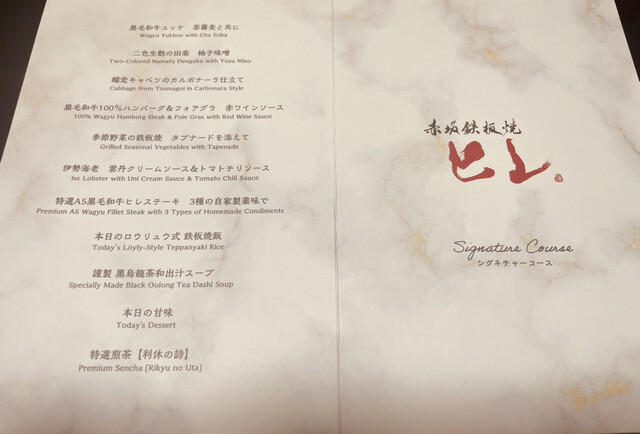 黒毛和牛ユッケ 茶蕎麦と共に
Wagyu Yukhoe with Cha Soba
二色生麩の田楽 柚子味噌
Two-Colored Namafu Dengaku with Yuzu Miso
嬬恋キャベツのカルボナーラ仕立て
Cabbage from Tsumagoi in Carbonara Style
黒毛和牛100%ハンバーグ&フォアグラ 赤ワインソース
100% Wagyu Hamburg Steak & Foie Gras with Red Wine Sauce
季節野菜の鉄板焼 タプナードを添えて
Grilled Seasonal Vegetables with Tapenade
伊勢海老 雲丹クリームソース&トマトチリソース
Ise Lobster with Uni Cream Sauce & Tomato Chili Sauce
特選A5黒毛和牛ヒレステーキ 3種の自家製薬味で
Premium A5 Wagyu Fillet Steak with 3 Types of Homemade Condiments
本日のロウリュウ式 鉄板焼飯
Today's Löyly-Style Teppanyaki Rice
謹製 黒烏龍茶和出汁スープ
Specially Made Black Oolong Tea Dashi Soup
本日の甘味
Today's Dessert
特選煎茶【利休の詩】
Premium Sencha [Rikyu no Uta]
赤坂鉄板焼
ヒレ
Signature Course
シグネチャーコース